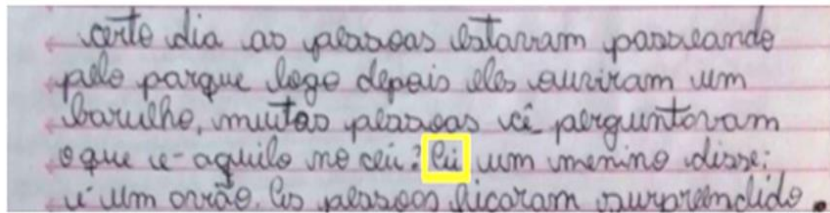 certo dia as pessoas estavam passeando
pelo parque logo depois eles ouviram um
barulho, muitas pessoas cê perguntavam
o que é aquilo no céu? Ei um menino disse:
é um avião. As pessoas ficaram surpreendido.